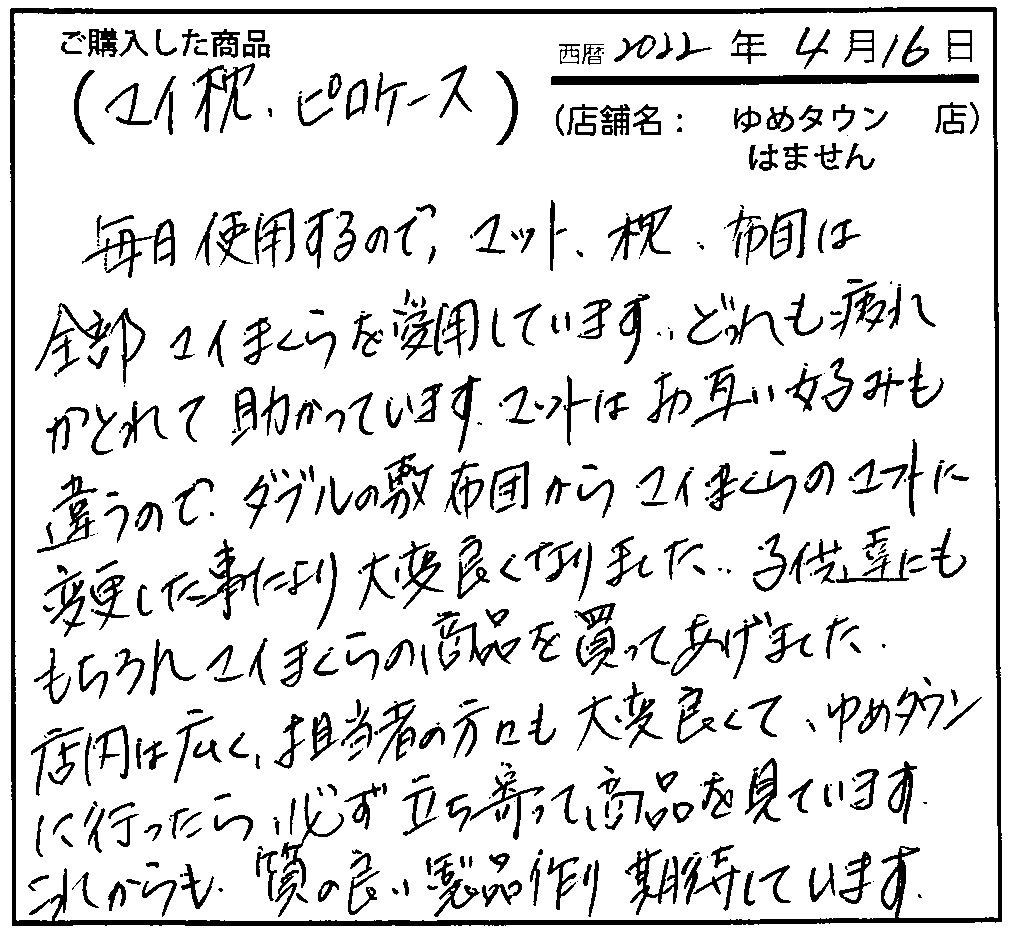 ご購入した商品
西暦 2022 年 4月16日
(マイ枕、ピロケース)
(店舗名: ゆめタウン 店)
はません
毎日使用するので、マット、枕、布団は
全部マイまくらを愛用しています。どれも疲れ
がとれて助かっています。マットはお互い好みも
違うので、ダブルの敷布団からマイまくらのマットに
変更した事により大変良くなりました。子供達にも
もちろんマイまくらの商品を買ってあげました。
店内は広く、担当者の方にも大変良くて、ゆめタウン
に行ったら、必ず立ち寄って商品を見ています。
これからも、質の良い製品作り期待しています。